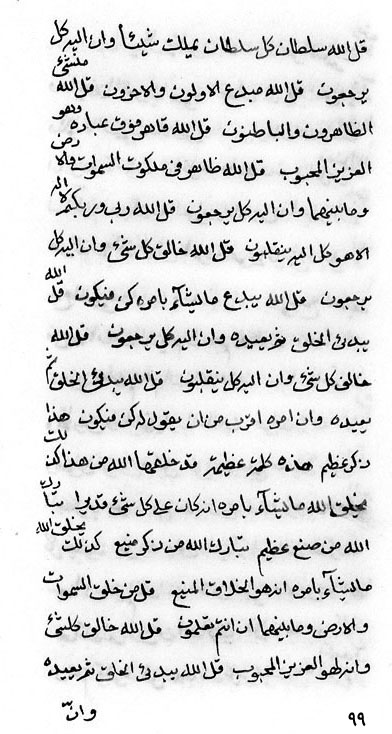 قل الله سلطان كل سلطان يملك شيئاً وان اليه كل
يرجعون قل الله مبدع الاولون والاخرون قل الله منشئ
الظاهرون والباطنون قل الله قاهر فوق عباده وهو
العزيز المحبوب قل الله ظاهر فى ملكوت السموات والارض
وما بينهما وان اليه كل يرجعون قل الله ربى وربكم لا اله
الا هو كل اليه ينقلبون قل الله خالق كل شئ وان اليه كل
يرجعون قل الله يبدع ما يشآء بامره كن فيكون قل الله
يبدئ الخلق ثم يعيده وان اليه كل يرجعون قل الله
خالق كل شئ وان اليه كل ينقلبون قل الله يبدئ الخلق ثم
يعيده وان امره اقرب من ان يقول له كن فيكون هذا
ذكر عظيم هذه كلمة عظيمة قد خلقها الله من هذا كذلك
يخلق الله ما يشآء بامره انه كان على كل شئ قديرا تبارك
الله من صنع عظيم تبارك الله من ذكر منيع كذلك يخلق الله
ما يشآء بامره انه هو الخلاق المنيع قل من خلق السموات
والارض وما بينهما ان انتم تعلمون قل الله خالق كلشئ
وانه لهو العزيز المحبوب قل الله يبدئ الخلق ثم يعيده
وانّ
٩٩